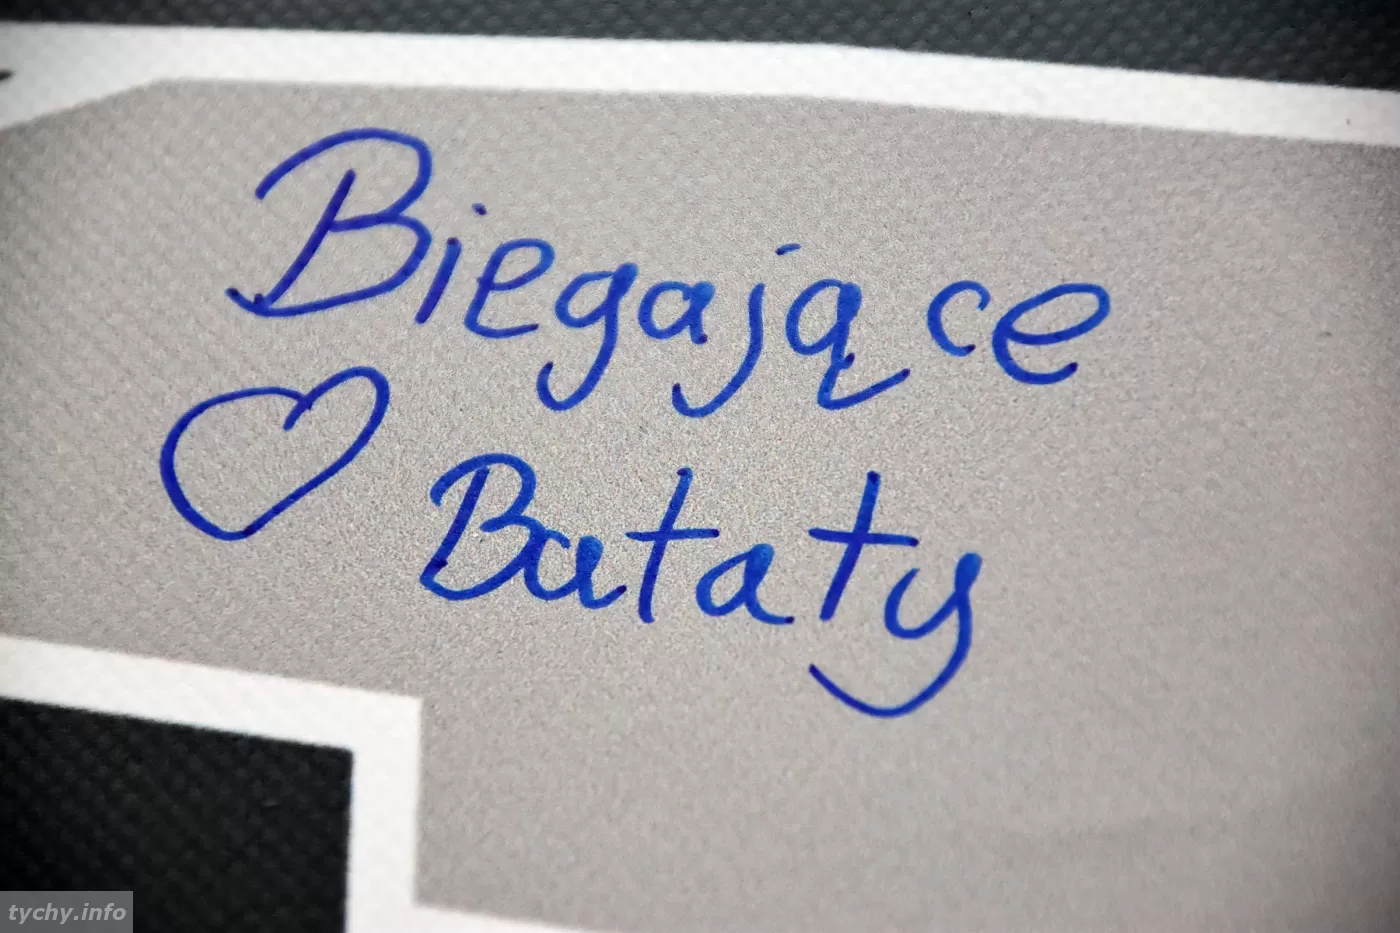 Biegające
♡ Bataty
tychy.info